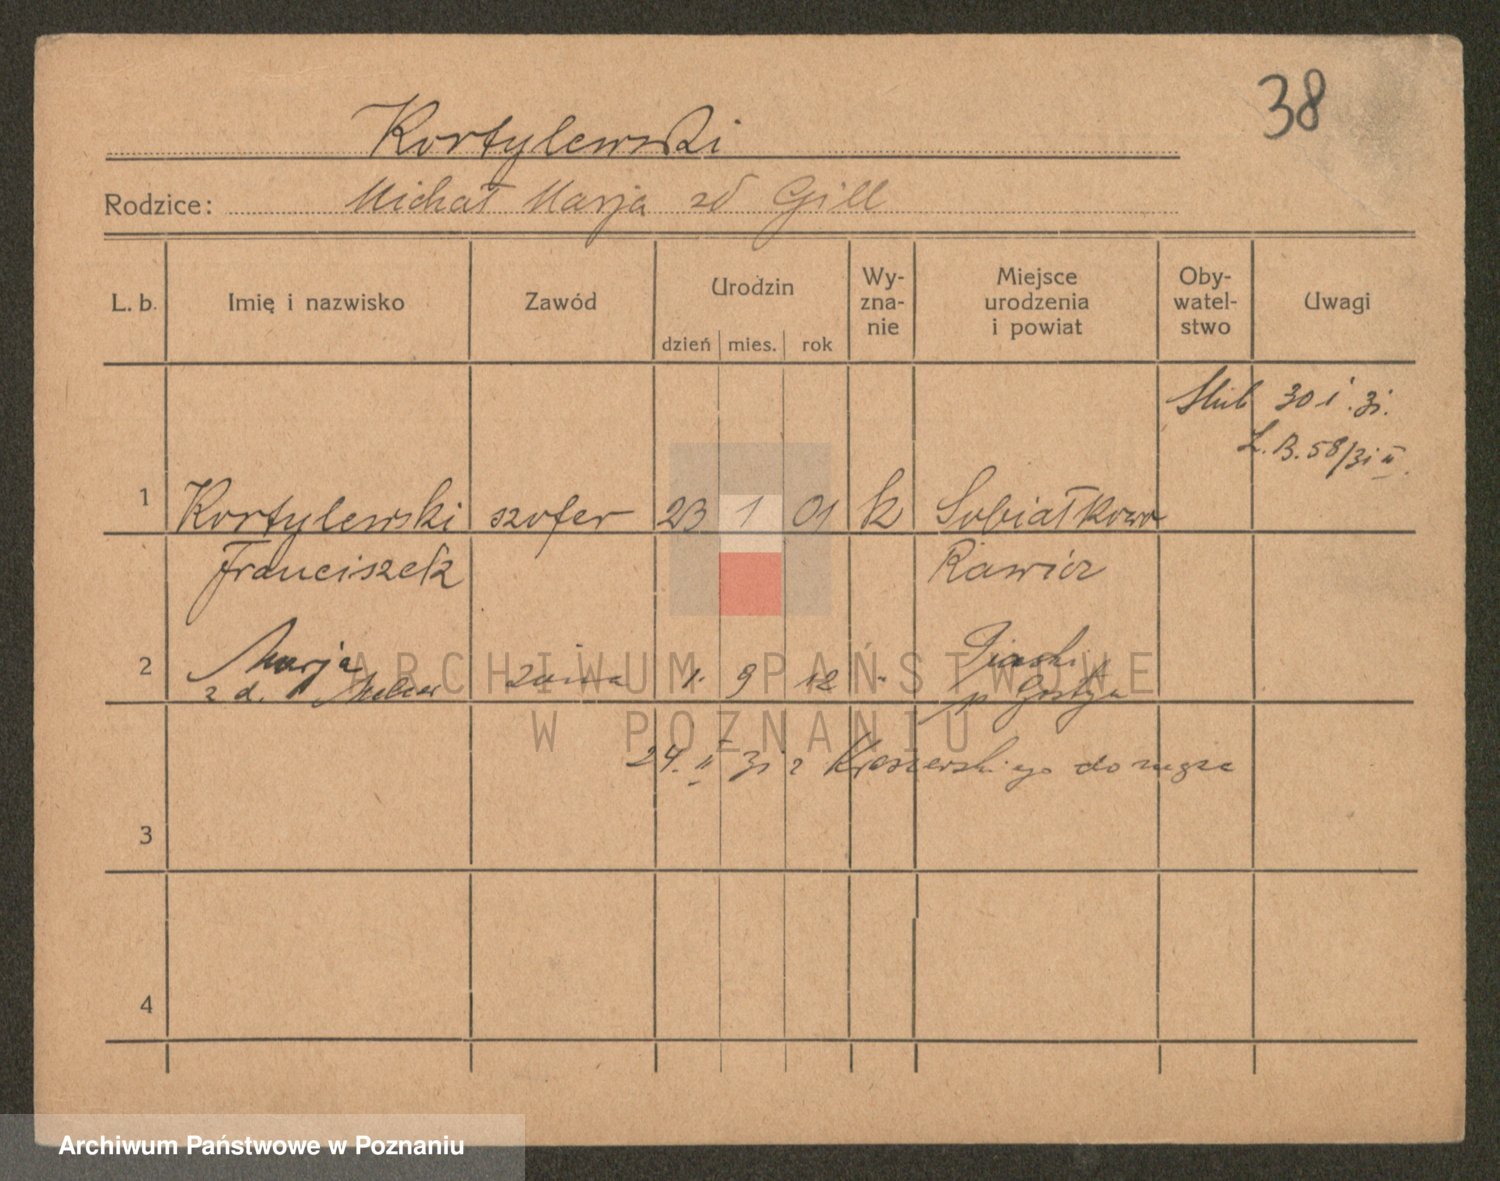 38
Kortylewski
Rodzice: Michał Marja zd Gill
L. b. Imię i nazwisko Zawód Urodzin dzień mies. rok Wy-zna-nie Miejsce urodzenia i powiat Oby-watel-stwo Uwagi
Ślub 30 I. 31.
L. B. 58/31 II.
1 Kortylewski szofer 23 1 01 k Sobiałkowo
Franciszek Rawicz
2 Marja żona 1. 9 12 " Piaski
z d. p Gostyń
24. II 31 z Kraszewskiego do męża
3
4
ARCHIWUM PAŃSTWOWE
W POZNANIU
Archiwum Państwowe w Poznaniu